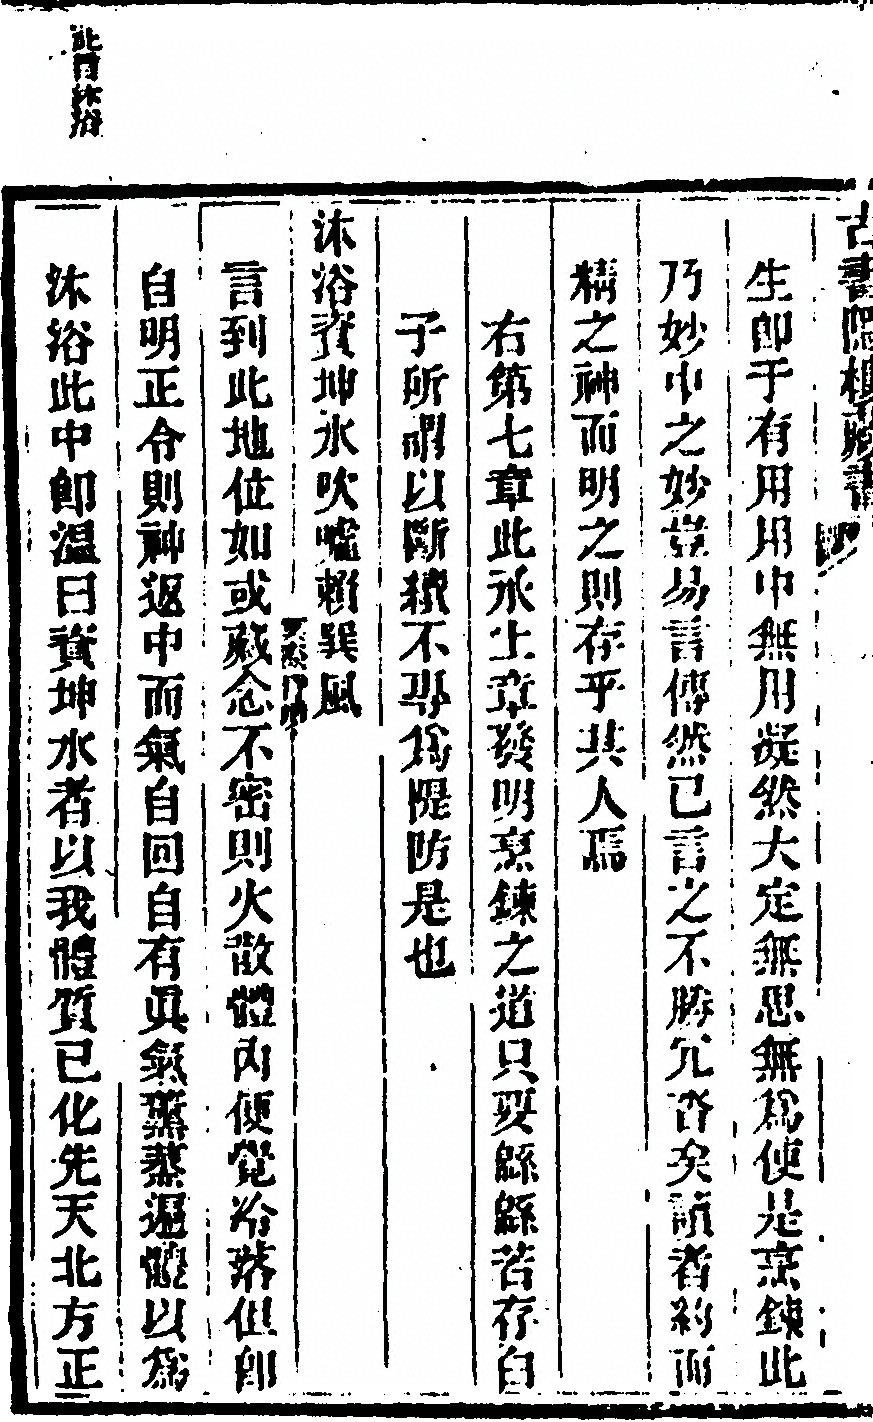 古書隱樓藏書
生即于有用用中無用凝然大定無思無為便是烹鍊此
乃妙中之妙豈易言傳然已言之不勝冗沓矣讀者約而
精之神而明之則存乎其人焉
右第七章此承上章發明烹鍊之道只要緜緜若存白
子所謂以斷續不專為隄防是也
沐浴資坤水吹噓賴巽風
言到此地位如或藏念不密則火散體內便覺冷落但即
自明正令則神返中而氣自回自有真氣薰蒸遍體以為
沐浴此中即溫曰資坤水者以我體質已化先天北方正
此言沐浴